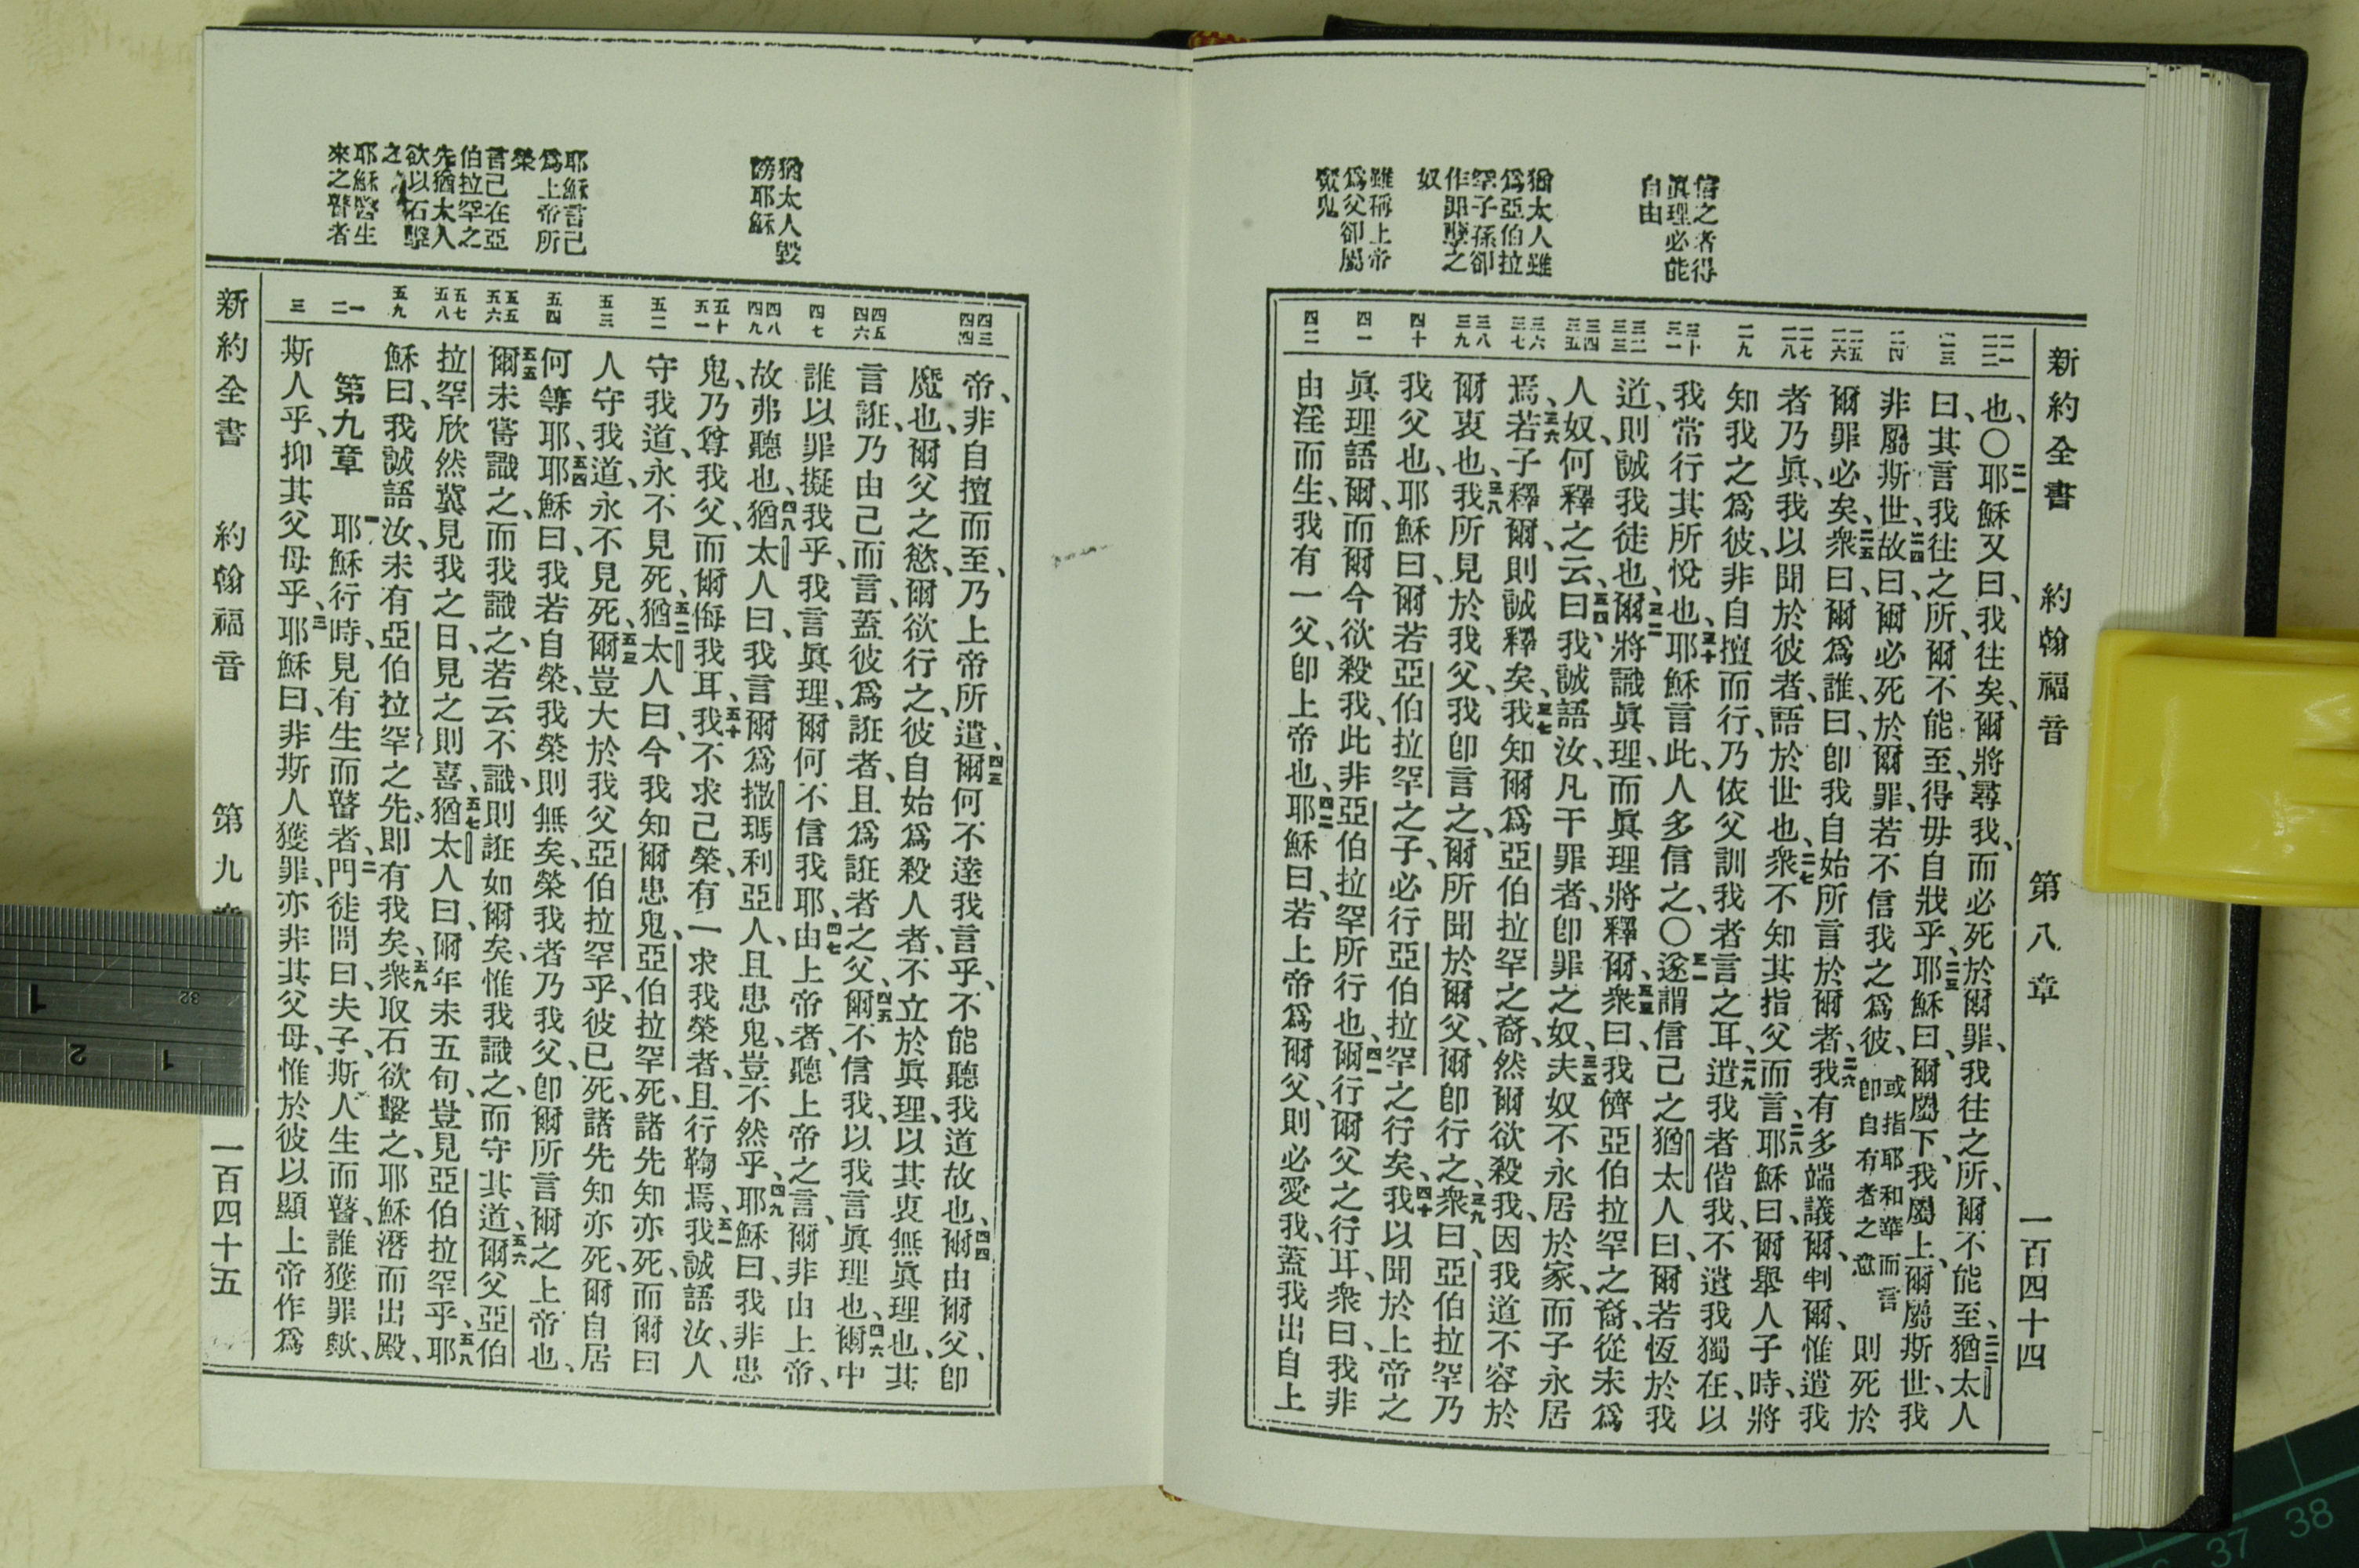 新約全書 約翰福音 第八章 一百四十四
信之者得
眞理必能
自由
猶太人雖
爲亞伯拉
罕子孫卻
作罪孽之
奴
雖稱上帝
爲父卻屬
魔鬼
二一 二二
二三
二四
二五 二六
二七 二八
二九
三十 三一
三二 三三
三四 三五
三六 三七
三八 三九
四十
四一
四二
也、〇二一耶穌又曰、我往矣、爾將尋我、而必死於爾罪、我往之所、爾不能至、二二猶太人
曰、其言我往之所、爾不能至、得毋自戕乎、二三耶穌曰、爾屬下、我屬上、爾屬斯世、我
非屬斯世、二四故曰、爾必死於爾罪、若不信我之爲彼、或指耶和華而言卽自有者之意則死於
爾罪必矣、二五衆曰、爾爲誰、曰、卽我自始所言於爾者、二六我有多端議爾、判爾、惟遣我
者乃眞、我以聞於彼者、語於世也、二七衆不知其指父而言、二八耶穌曰、爾舉人子時、將
知我之爲彼、非自擅而行、乃依父訓我者言之耳、二九遣我者偕我、不遺我獨在、以
我常行其所悅也、三十耶穌言此、人多信之、〇三一遂謂信己之猶太人曰、爾若恆於我
道、則誠我徒也、三二爾將識眞理、而眞理將釋爾、三三衆曰、我儕亞伯拉罕之裔、從未爲
人奴、何釋之云、三四曰、我誠語汝、凡干罪者、卽罪之奴、三五夫奴不永居於家、而子永居
焉、三六若子釋爾、則誠釋矣、三七我知爾爲亞伯拉罕之裔、然爾欲殺我、因我道不容於
爾衷也、三八我所見於我父、我卽言之、爾所聞於爾父、爾卽行之、三九衆曰、亞伯拉罕乃
我父也、耶穌曰、爾若亞伯拉罕之子、必行亞伯拉罕之行矣、四十我以聞於上帝之
眞理語爾、而爾今欲殺我、此非亞伯拉罕所行也、四一爾行爾父之行耳、衆曰、我非
由淫而生、我有一父、卽上帝也、四二耶穌曰、若上帝爲爾父、則必愛我、蓋我出自上
猶太人毀
謗耶穌
耶穌言己
爲上帝所
榮
言己在亞
伯拉罕之
先猶太人
欲以石擊
之
耶穌醫生
來之瞽者
四三 四四
四五 四六
四七
四八 四九
五十 五一
五二
五三
五四
五五 五六
五七 五八
五九
一 二
三
帝、非自擅而至、乃上帝所遣、四三爾何不達我言乎、不能聽我道故也、四四爾由爾父、卽
魔也、爾父之慾、爾欲行之、彼自始爲殺人者、不立於眞理、以其衷無眞理也、其
言誑、乃由己而言、蓋彼爲誑者、且爲誑者之父、四五爾不信我、以我言眞理也、四六爾中
誰以罪擬我乎、我言眞理、爾何不信我耶、四七由上帝者、聽上帝之言、爾非由上帝、
故弗聽也、四八猶太人曰、我言爾爲撒瑪利亞人、且患鬼、豈不然乎、四九耶穌曰、我非患
鬼、乃尊我父、而爾侮我耳、五十我不求己榮、有一求我榮者、且行鞫焉、五一我誠語汝、人
守我道、永不見死、五二猶太人曰、今我知爾患鬼、亞伯拉罕死、諸先知亦死、而爾曰
人守我道、永不見死、五三爾豈大於我父亞伯拉罕乎、彼已死、諸先知亦死、爾自居
何等耶、五四耶穌曰、我若自榮、我榮則無矣、榮我者乃我父、卽爾所言爾之上帝也、
五五爾未嘗識之、而我識之、若云不識、則誑如爾矣、惟我識之、而守其道、五六爾父亞伯
拉罕欣然冀見我之日、見之則喜、五七猶太人曰、爾年未五旬、豈見亞伯拉罕乎、五八耶
穌曰、我誠語汝、未有亞伯拉罕之先、卽有我矣、五九衆取石欲擊之、耶穌潛而出殿、
第九章 一耶穌行時、見有生而瞽者、二門徒問曰、夫子、斯人生而瞽、誰獲罪歟、
斯人乎、抑其父母乎、三耶穌曰、非斯人獲罪、亦非其父母、惟於彼以顯上帝作爲
新約全書 約翰福音 第九 一百四十五
1
32
2 1
37 38